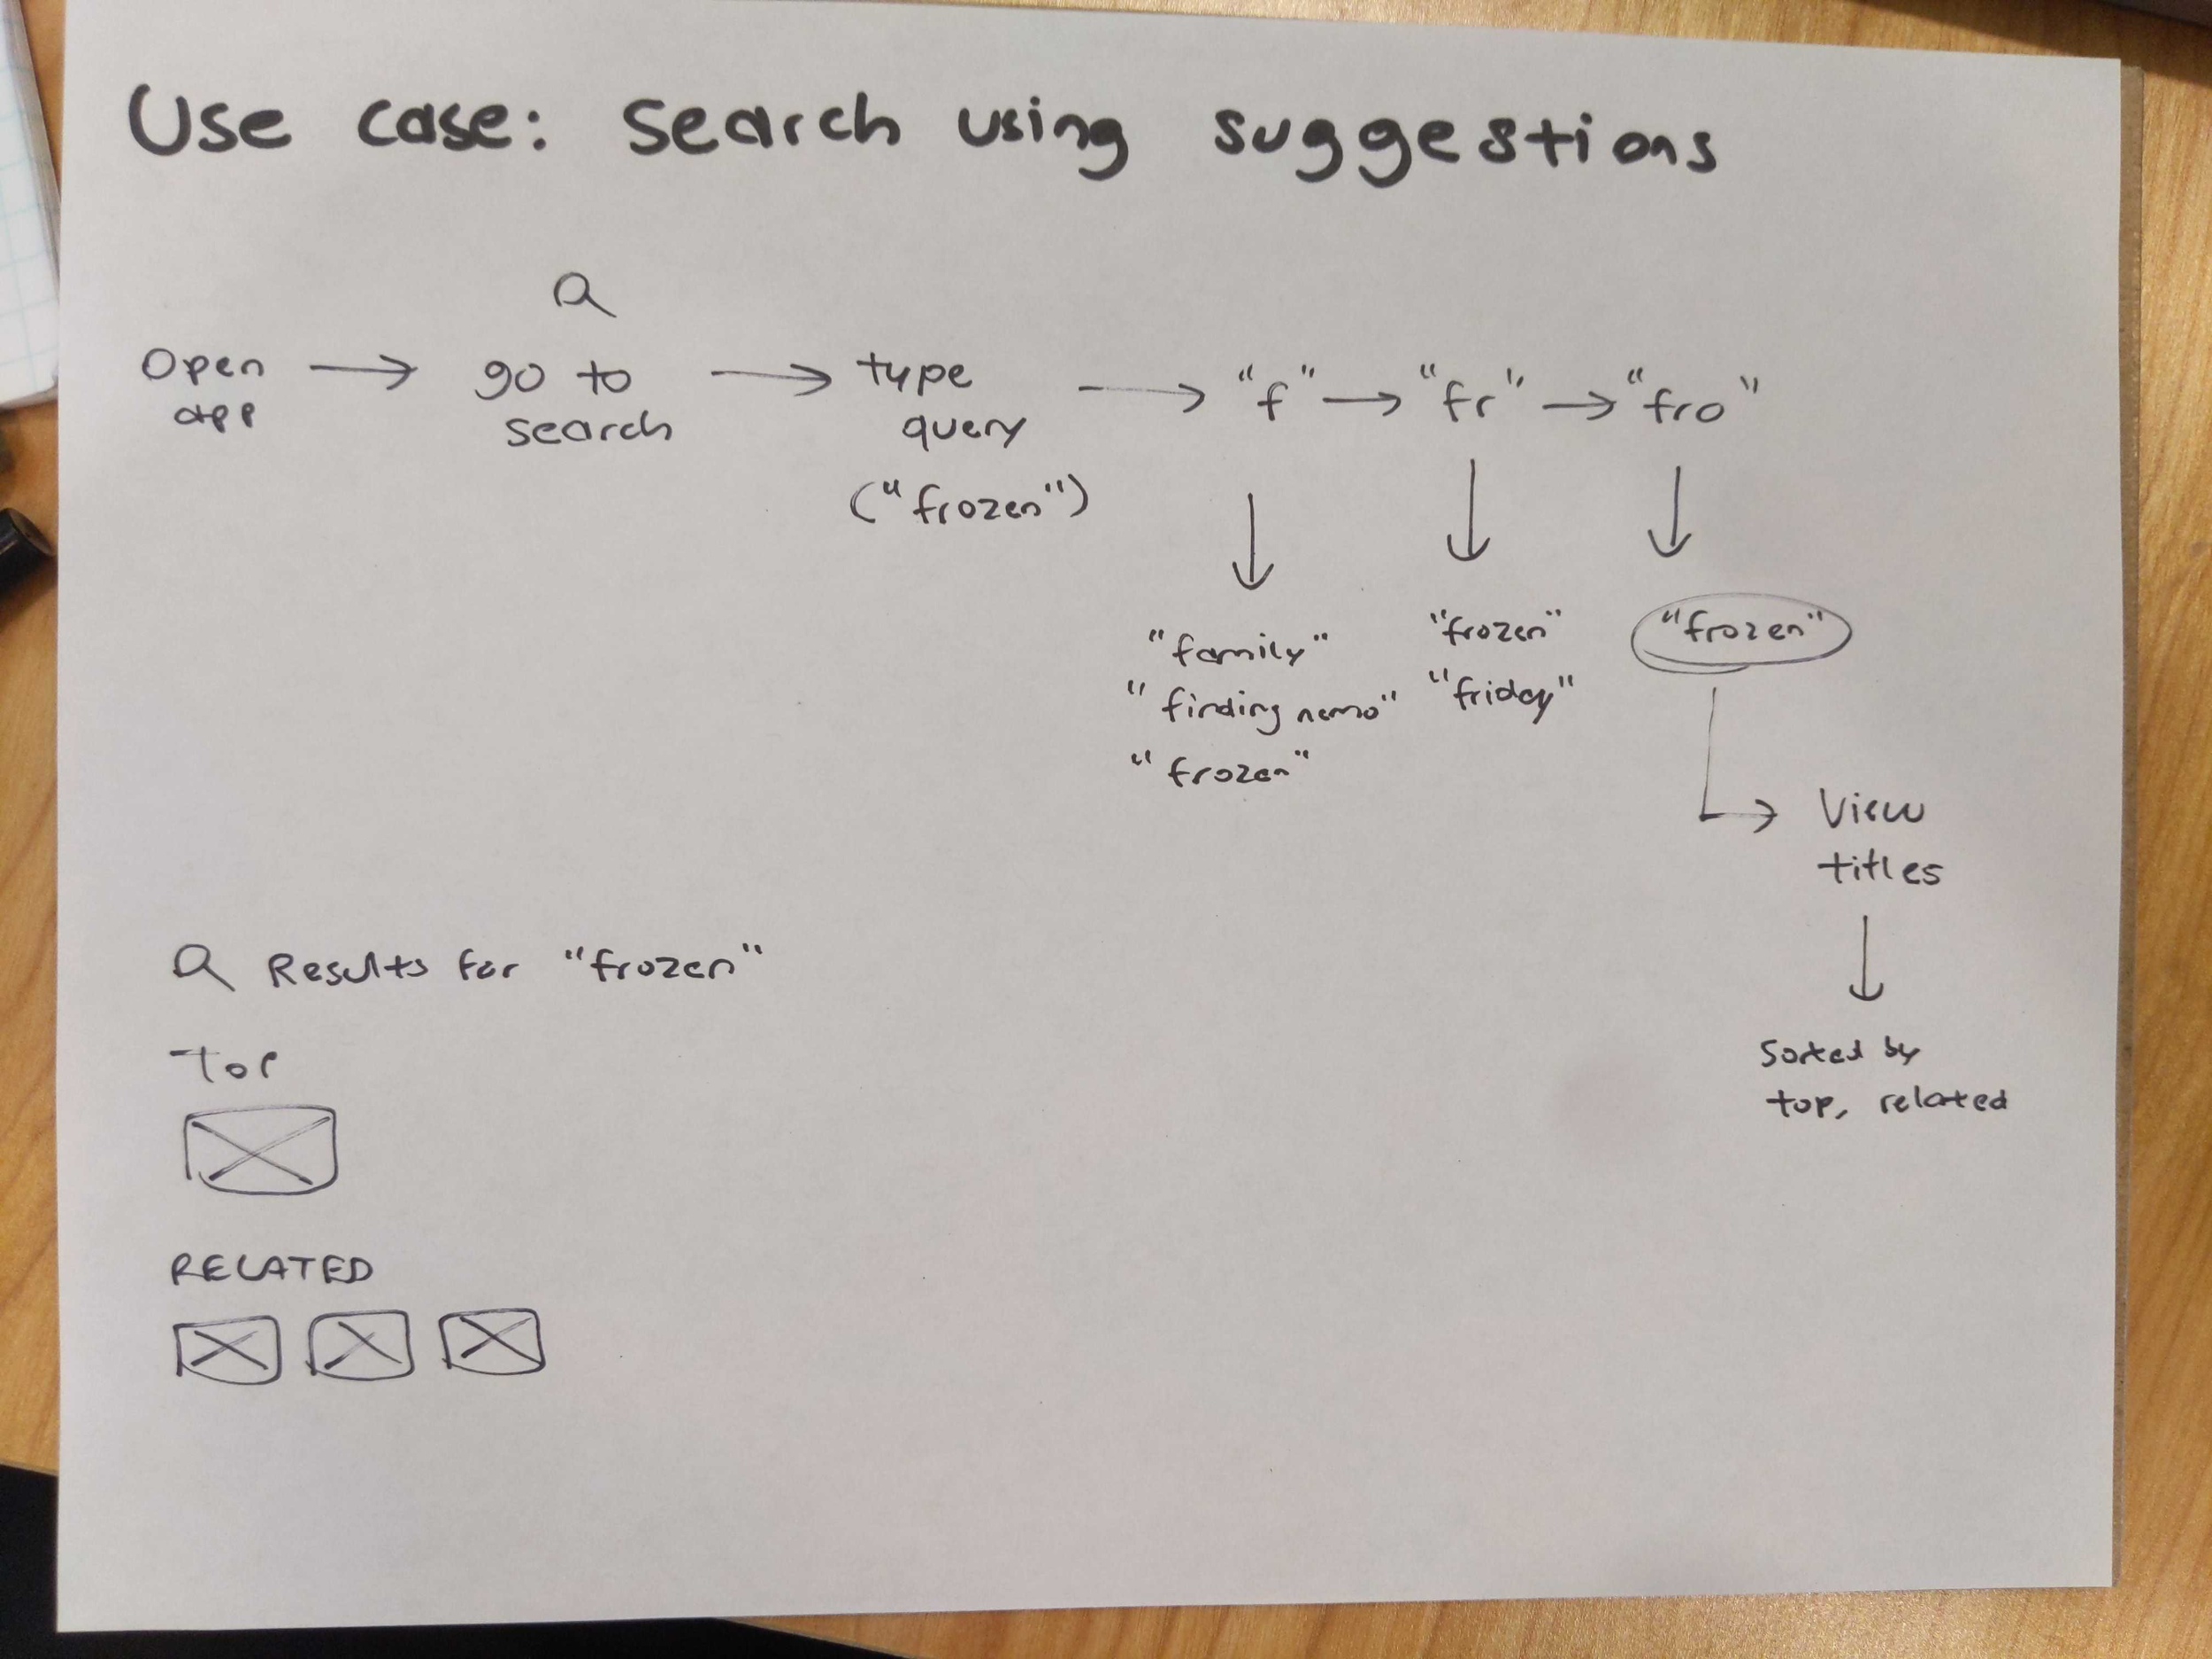 Use case: search using suggestions
Open app
go to search
type query
("frozen")
"f"
"fr"
"fro"
"family"
"finding nemo"
"frozen"
"frozen"
"friday"
"frozen"
View titles
Sorted by
top, related
Results for "frozen"
TOP
RELATED